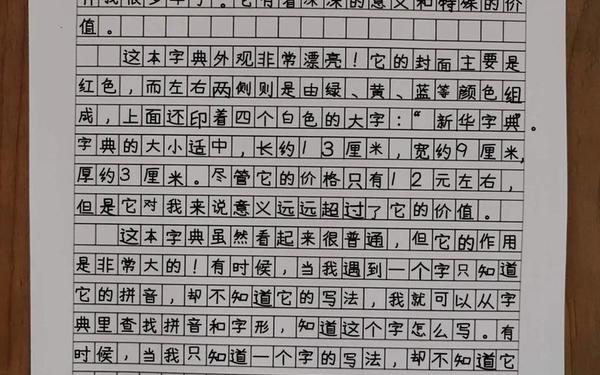 伴我很多年了。它有着深深的意义和特殊的价
值。
这本字典外观非常漂亮！它的封面主要是
红色，而左右两侧则是由绿、黄、蓝等颜色组
成，上面还印着四个白色的大字：“新华字典”。
字典的大小适中，长约13厘米，宽约9厘米，
厚约3厘米。尽管它的价格只有12元左右，
但是它对我来说意义远远超过了它的价值。
这本字典虽然看起来很普通，但它的作用
是非常大的！有时候，当我遇到一个字只知道
它的拼音，却不知道它的写法，我就可以从字
典里查找拼音和字形，知道这个字怎么写。有
时候，当我只知道一个字的写法，却不知道它